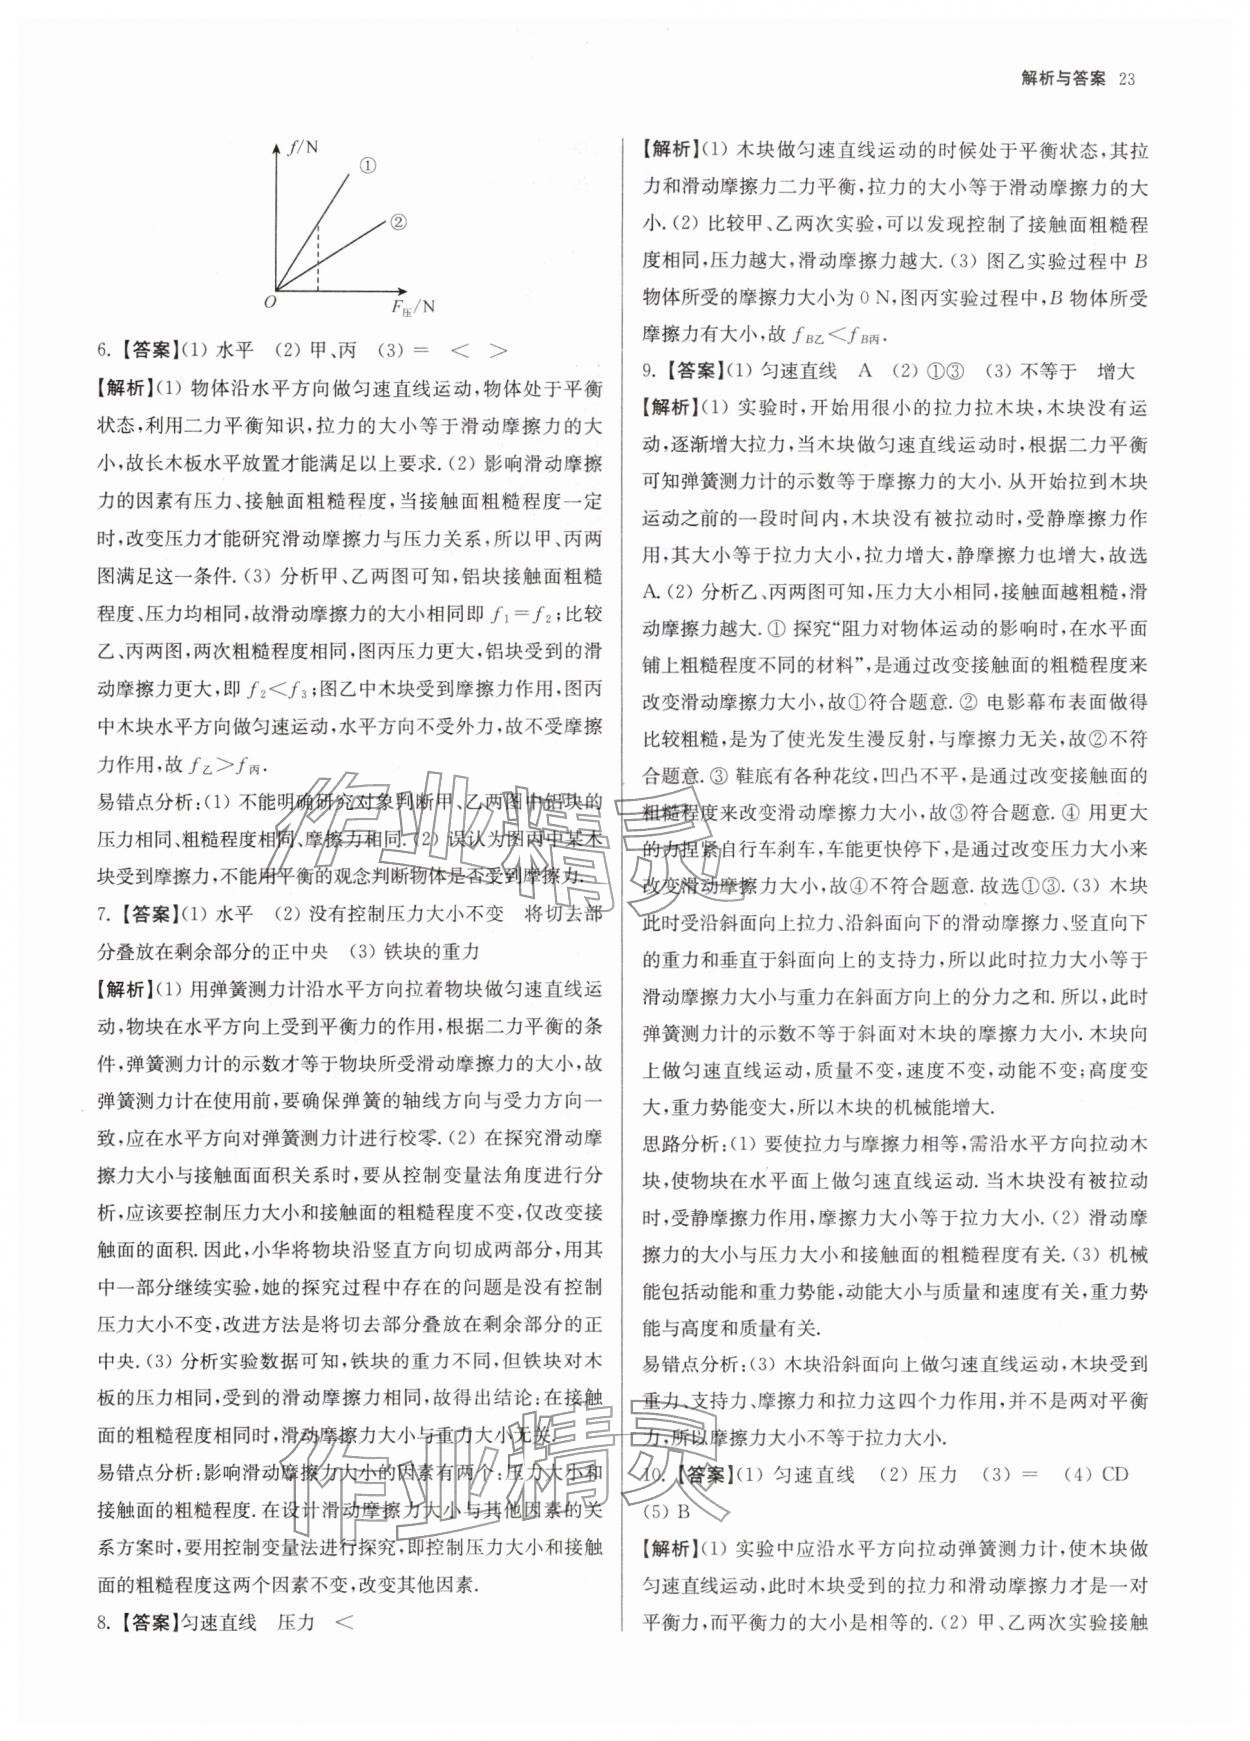 解析与答案 23
f/N
①
②
O
F压/N
6. 【答案】(1) 水平 (2) 甲、丙 (3) = < >
【解析】(1) 物体沿水平方向做匀速直线运动,物体处于平衡
状态,利用二力平衡知识,拉力的大小等于滑动摩擦力的大
小,故长木板水平放置才能满足以上要求.(2) 影响滑动摩擦
力的因素有压力、接触面粗糙程度,当接触面粗糙程度一定
时,改变压力才能研究滑动摩擦力与压力关系,所以甲、丙两
图满足这一条件.(3) 分析甲、乙两图可知,铝块接触面粗糙
程度、压力均相同,故滑动摩擦力的大小相同即 f₁=f₂;比较
乙、丙两图,两次粗糙程度相同,图丙压力更大,铝块受到的滑
动摩擦力更大,即 f₂<f₃;图乙中木块受到摩擦力作用,图丙
中木块水平方向做匀速运动,水平方向不受外力,故不受摩擦
力作用,故 f乙>f丙.
易错点分析:(1) 不能明确研究对象判断甲、乙两图中铝块的
压力相同、粗糙程度相同、摩擦力相同.(2) 误认为图丙中某木
块受到摩擦力,不能用平衡的观念判断物体是否受到摩擦力.
7. 【答案】(1) 水平 (2) 没有控制压力大小不变 将切去部
分叠放在剩余部分的正中央 (3) 铁块的重力
【解析】(1) 用弹簧测力计沿水平方向拉着物块做匀速直线运
动,物块在水平方向上受到平衡力的作用,根据二力平衡的条
件,弹簧测力计的示数才等于物块所受滑动摩擦力的大小,故
弹簧测力计在使用前,要确保弹簧的轴线方向与受力方向一
致,应在水平方向对弹簧测力计进行校零.(2) 在探究滑动摩
擦力大小与接触面面积关系时,要从控制变量法角度进行分
析,应该要控制压力大小和接触面的粗糙程度不变,仅改变接
触面的面积.因此,小华将物块沿竖直方向切成两部分,用其
中一部分继续实验,她的探究过程中存在的问题是没有控制
压力大小不变,改进方法是将切去部分叠放在剩余部分的正
中央.(3) 分析实验数据可知,铁块的重力不同,但铁块对木
板的压力相同,受到的滑动摩擦力相同,故得出结论:在接触
面的粗糙程度相同时,滑动摩擦力大小与重力大小无关.
易错点分析:影响滑动摩擦力大小的因素有两个:压力大小和
接触面的粗糙程度.在设计滑动摩擦力大小与其他因素的关
系方案时,要用控制变量法进行探究,即控制压力大小、接触
面的粗糙程度这两个因素不变,改变其他因素.
8. 【答案】匀速直线 压力 <
【解析】(1) 木块做匀速直线运动的时候处于平衡状态,其拉
力和滑动摩擦力二力平衡,拉力的大小等于滑动摩擦力的大
小.(2) 比较甲、乙两次实验,可以发现控制了接触面粗糙程
度相同,压力越大,滑动摩擦力越大.(3) 图乙实验过程中 B
物体所受的摩擦力大小为 0 N,图丙实验过程中,B 物体所受
摩擦力有大小,故 fB乙<fB丙.
9. 【答案】(1) 匀速直线 A (2) ①③ (3) 不等于 增大
【解析】(1) 实验时,开始用很小的拉力拉木块,木块没有运
动,逐渐增大拉力,当木块做匀速直线运动时,根据二力平衡
可知弹簧测力计的示数等于摩擦力的大小.从开始拉到木块
运动之前的一段时间内,木块没有被拉动时,受静摩擦力作
用,其大小等于拉力大小,拉力增大,静摩擦力也增大,故选
A.(2) 分析乙、丙两图可知,压力大小相同,接触面越粗糙,滑
动摩擦力越大.① 探究“阻力对物体运动的影响时,在水平面
铺上粗糙程度不同的材料”,是通过改变接触面的粗糙程度来
改变滑动摩擦力大小,故①符合题意.② 电影幕布表面做得
比较粗糙,是为了使光发生漫反射,与摩擦力无关,故②不符
合题意.③ 鞋底有各种花纹,凹凸不平,是通过改变接触面的
粗糙程度来改变滑动摩擦力大小,故③符合题意.④ 用更大
的力捏紧自行车刹车,车能更快停下,是通过改变压力大小来
改变滑动摩擦力大小,故④不符合题意.故选①③.(3) 木块
此时受沿斜面向上拉力、沿斜面向下的滑动摩擦力、竖直向下
的重力和垂直于斜面向上的支持力,所以此时拉力大小等于
滑动摩擦力大小与重力在斜面方向上的分力之和.所以,此时
弹簧测力计的示数不等于斜面对木块的摩擦力大小.木块向
上做匀速直线运动,质量不变,速度不变,动能不变;高度变
大,重力势能变大,所以木块的机械能增大.
思路分析:(1) 要使拉力与摩擦力相等,需沿水平方向拉动木
块,使物块在水平面上做匀速直线运动.当木块没有被拉动
时,受静摩擦力作用,摩擦力大小等于拉力大小.(2) 滑动摩
擦力的大小与压力大小和接触面的粗糙程度有关.(3) 机械
能包括动能和重力势能,动能大小与质量和速度有关,重力势
能与高度和质量有关.
易错点分析:(3) 木块沿斜面向上做匀速直线运动,木块受到
重力、支持力、摩擦力和拉力这四个力作用,并不是两对平衡
力,所以摩擦力大小不等于拉力大小.
10. 【答案】(1) 匀速直线 (2) 压力 (3) = (4) CD
(5) B
【解析】(1) 实验中应沿水平方向拉动弹簧测力计,使木块做
匀速直线运动,此时木块受到的拉力和滑动摩擦力才是一对
平衡力,而平衡力的大小是相等的.(2) 甲、乙两次实验接触
作业精灵
作业精灵